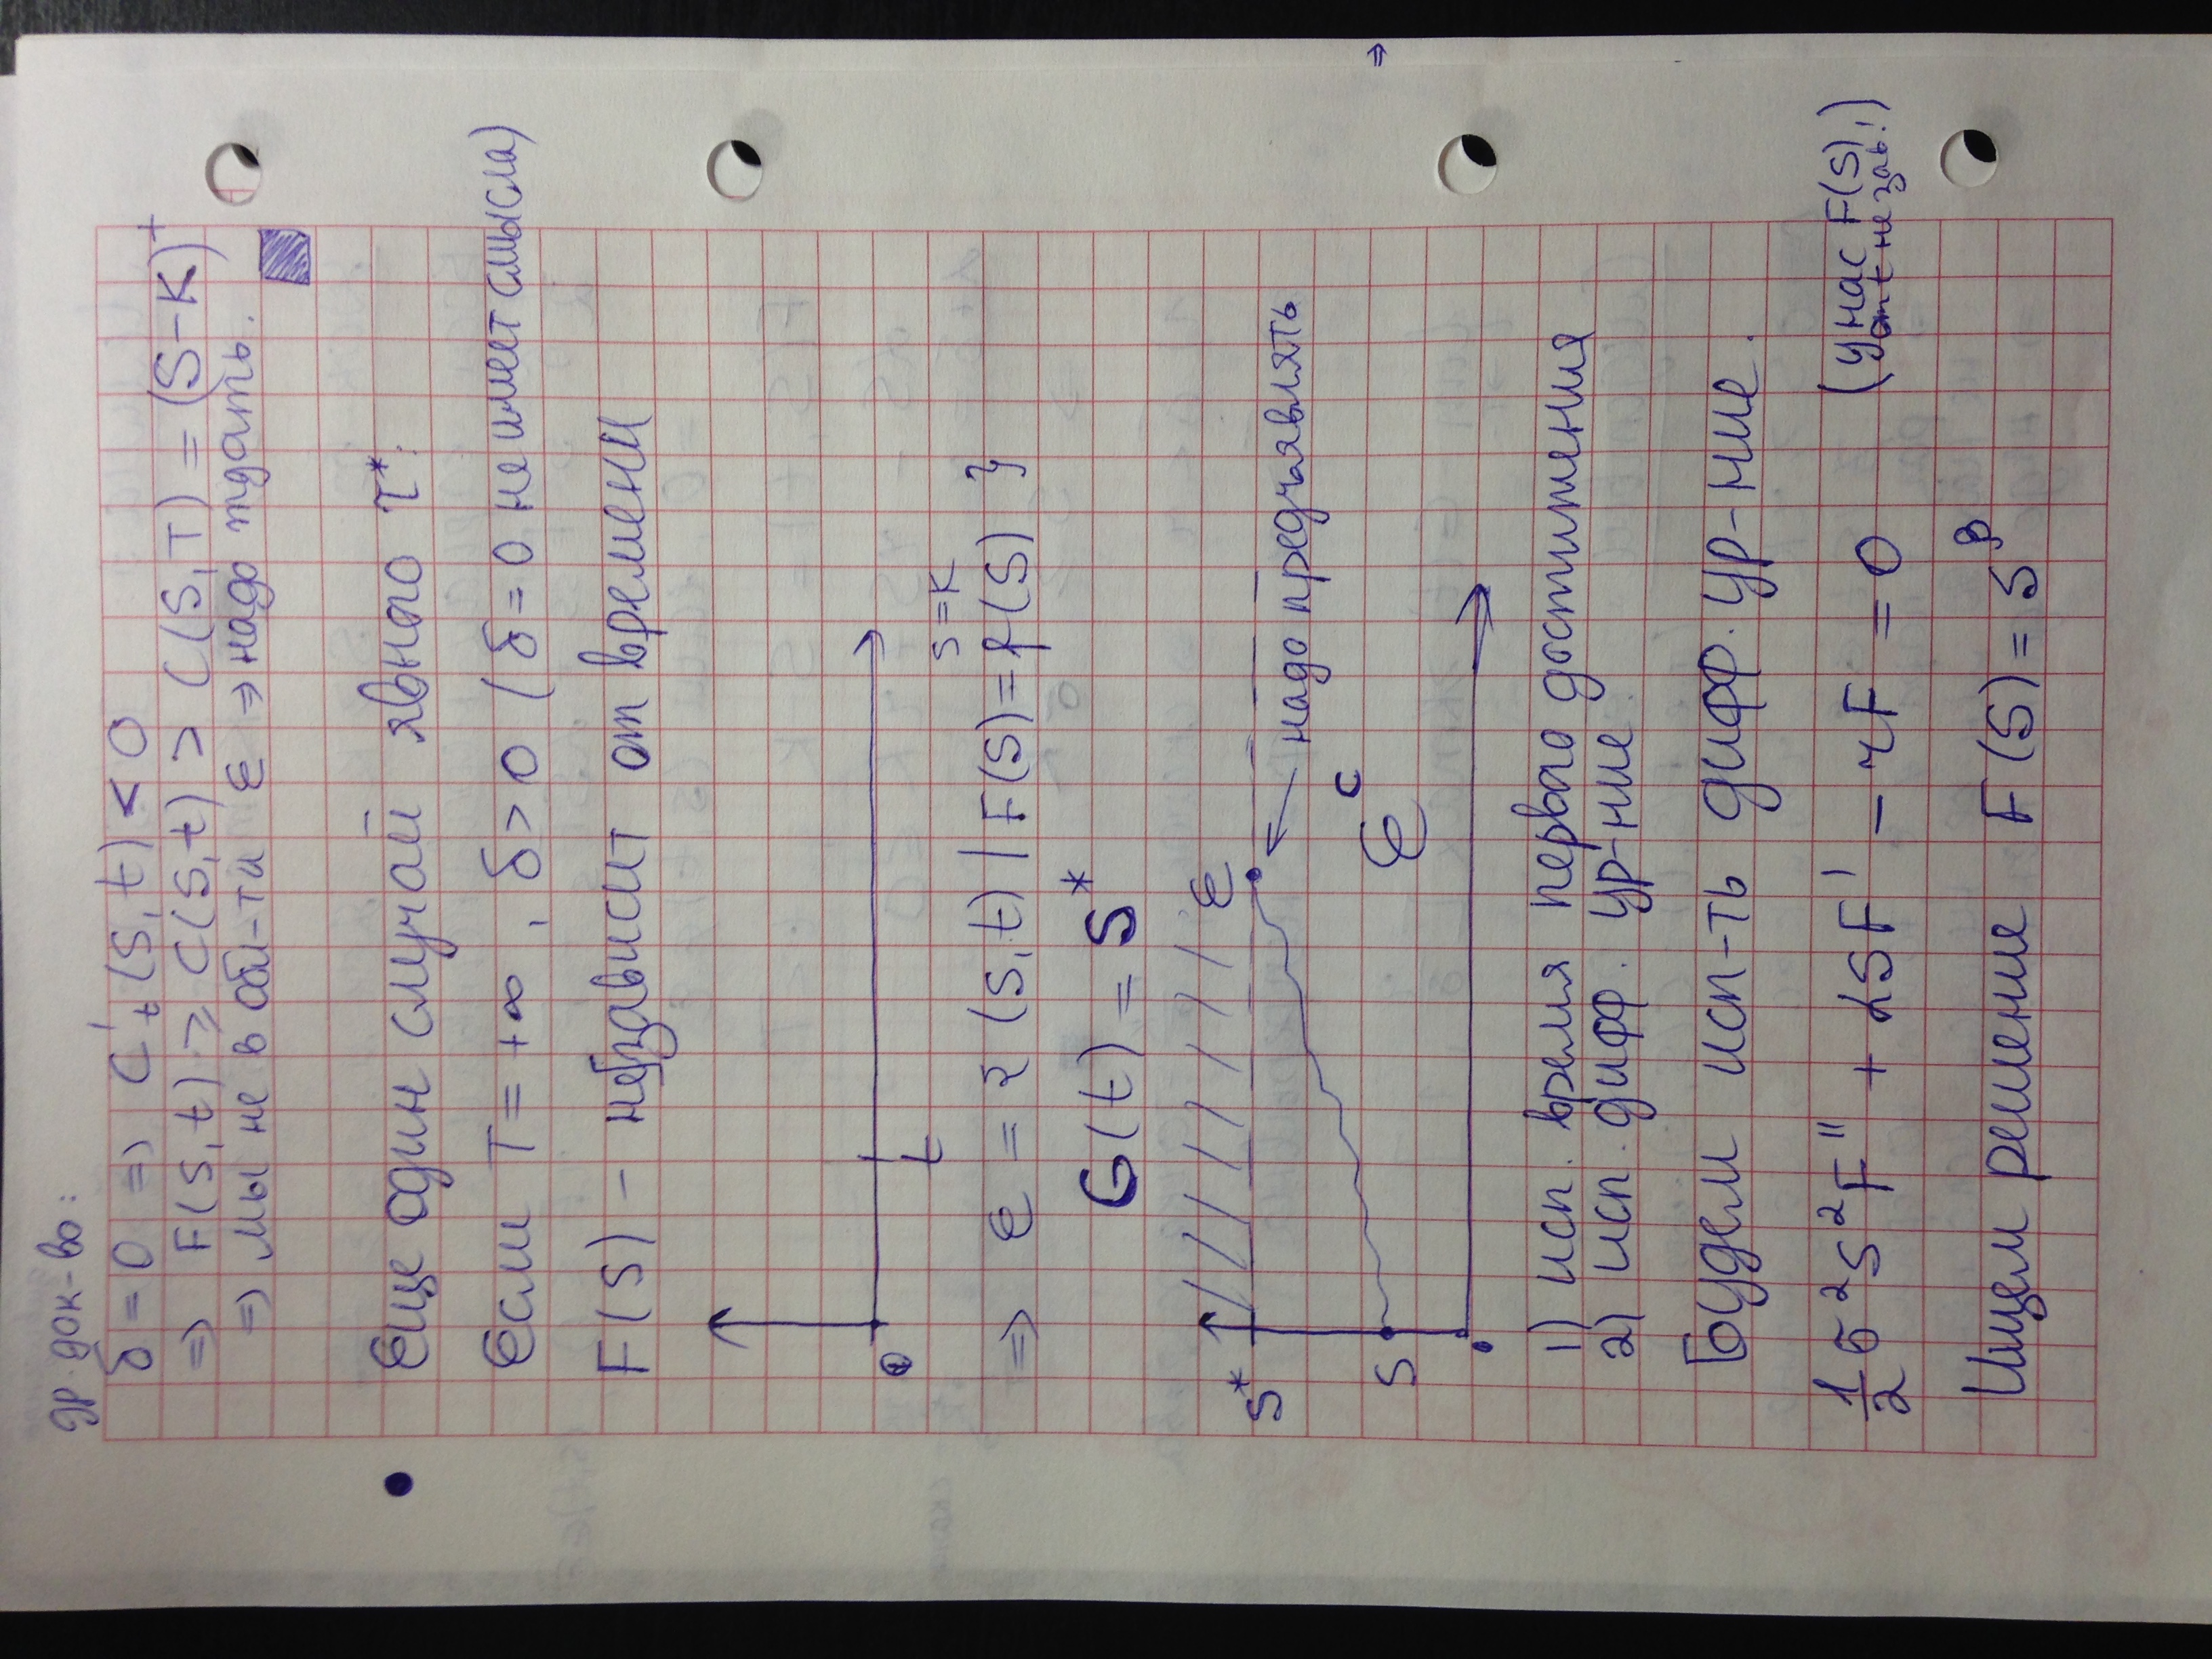 др. док-во:
δ = 0 ⇒ C'_t (S, t) < 0
⇒ F(S, t) ≥ C(S, t) > C(S, T) = (S-K)^+
⇒ мы не в обл-ти ε ⇒ надо ждать.
Еще один случай явного τ*:
Если T = +∞, δ > 0 (δ = 0 не имеет смысла)
F(S) - не зависит от времени
0
t
S=K
⇒ ε = { (S, t) | F(S) = f(S) }
G(t) = S*
S*
ε
надо предъявлять
S
ε^c
1) исп. время первого достижения
2) исп. дифф. ур-ние.
Будем исп-ть дифф. ур-ние.
1/2 σ² S² F'' + αSF' - rF = 0 (у нас F(S), от t не зав.!)
Ищем решение F(S) = S^β
⇒